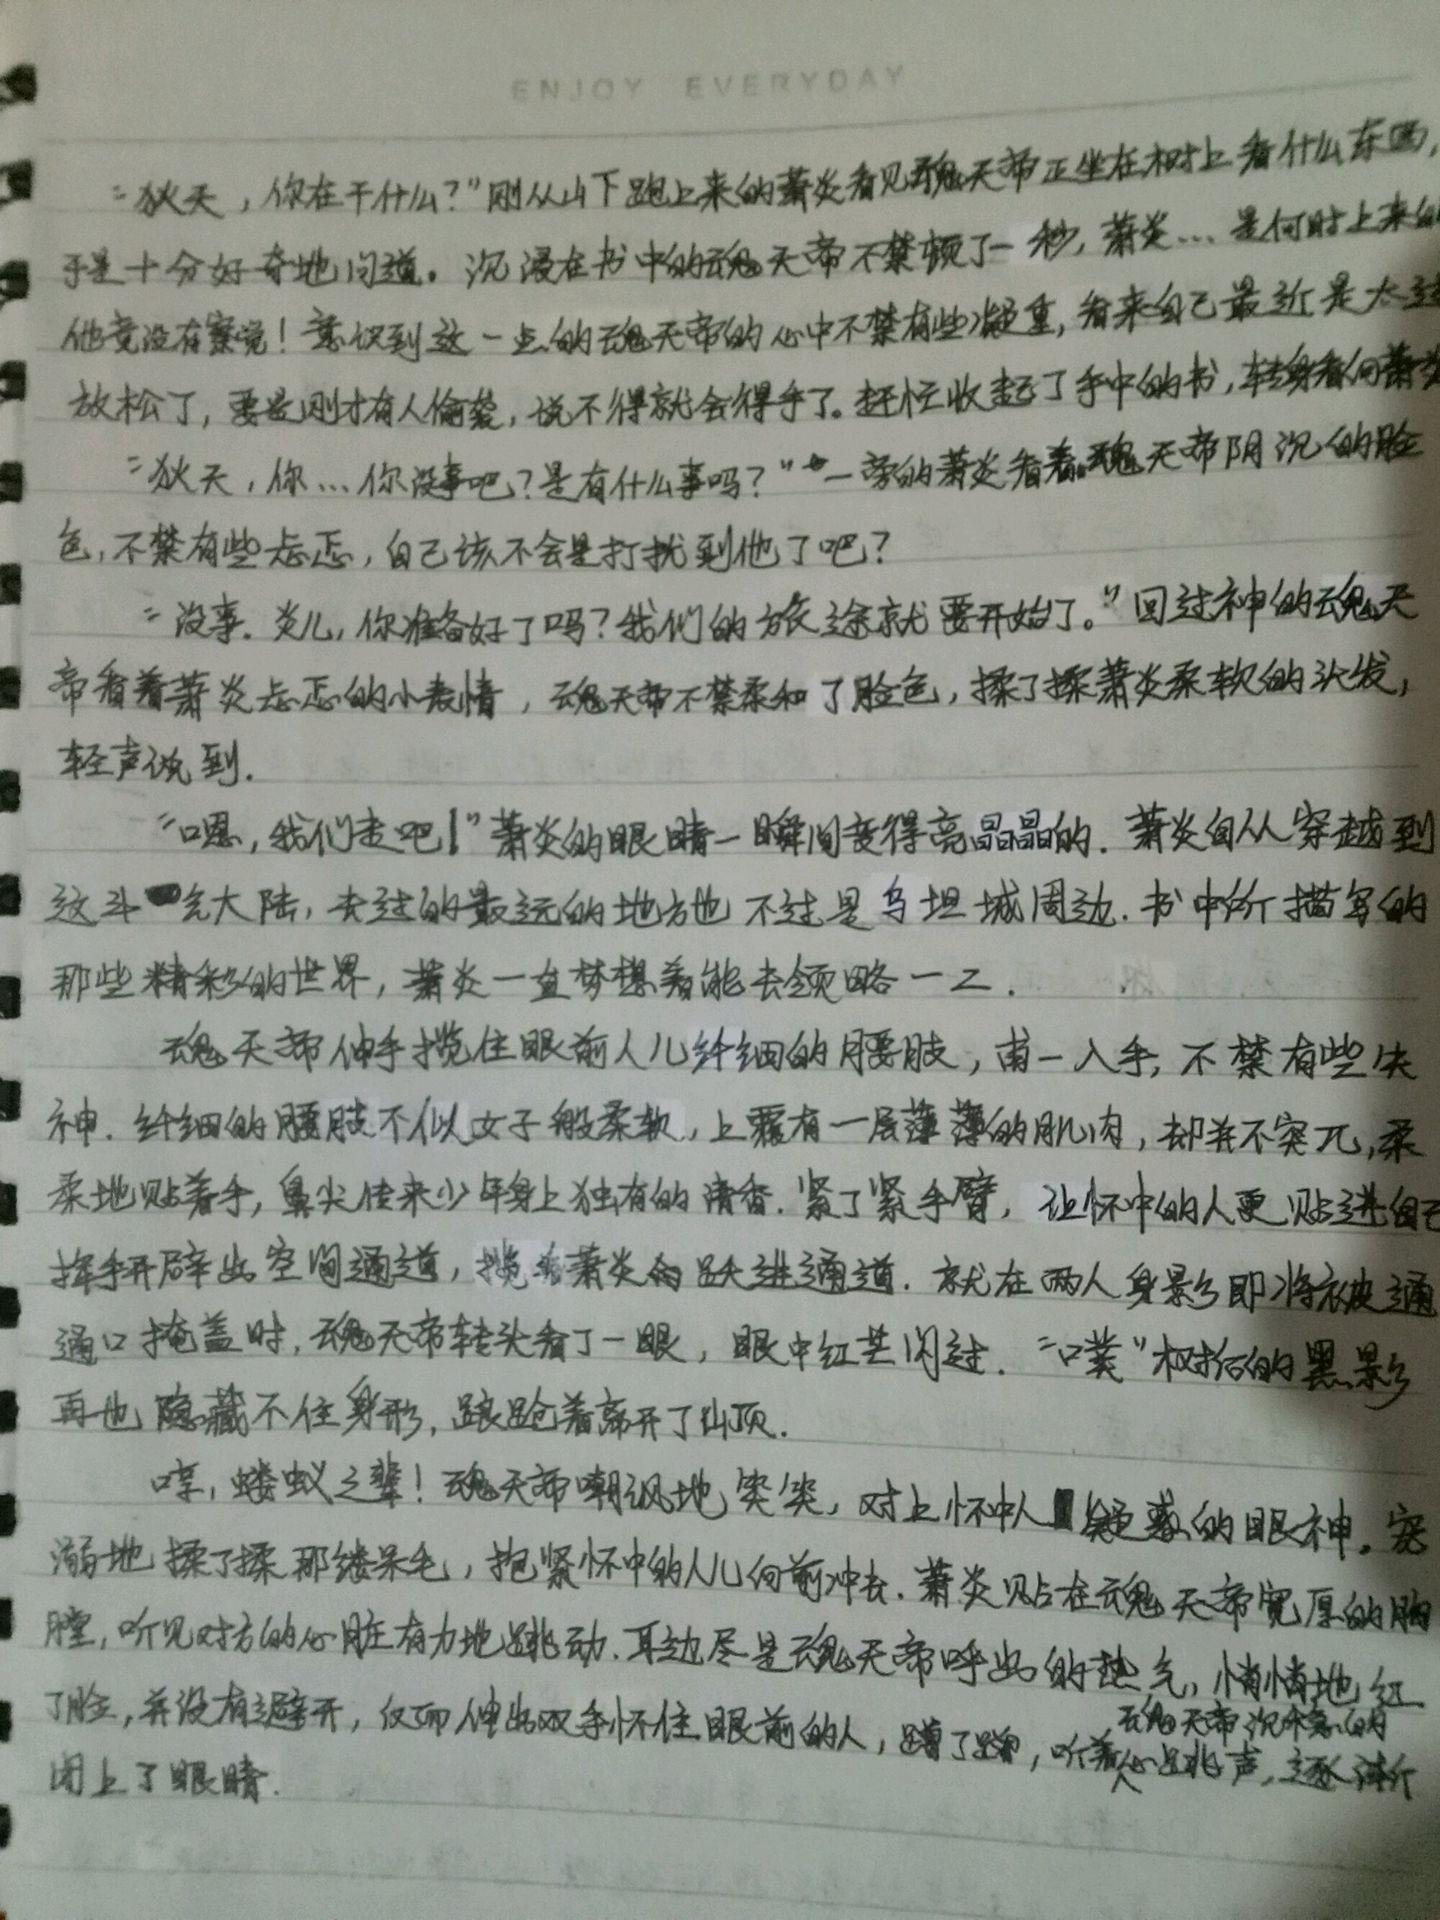 ENJOY EVERYDAY
“狄天，你在干什么？”刚从山下跑上来的萧炎看见魂天帝正坐在树上看什么东西，
于是十分好奇地问道。沉浸在书中的魂天帝不禁顿了一秒，萧炎…是何时上来的
他竟没有察觉！意识到这一点的魂天帝的心中不禁有些凝重，看来自己最近是太过
放松了，要是刚才有人偷袭，说不得就会得手了。赶忙收起了手中的书，转身看向萧炎
“狄天，你…你没事吧？是有什么事吗？”一旁的萧炎看着魂天帝阴沉的脸
色，不禁有些忐忑，自己该不会是打扰到他了吧？
“没事．炎儿，你准备好了吗？我们的旅途就要开始了。”回过神的魂天
帝看着萧炎忐忑的小表情，魂天帝不禁柔和了脸色，揉了揉萧炎柔软的头发，
轻声说到．
“嗯，我们走吧！”萧炎的眼睛一瞬间变得亮晶晶的．萧炎自从穿越到
这斗气大陆，去过的最远的地方也不过是乌坦城周边．书中所描写的
那些精彩的世界，萧炎一直梦想着能去领略一二．
魂天帝伸手揽住眼前人儿纤细的腰肢，甫一入手，不禁有些失
神．纤细的腰肢不似女子般柔软，上覆有一层薄薄的肌肉，却并不突兀，柔
柔地贴着手，鼻尖传来少年身上独有的清香．紧了紧手臂，让怀中的人更贴进自己
挥手开辟出空间通道，揽着萧炎向跃进通道．就在两人身影即将被通
通口掩盖时，魂天帝转头看了一眼，眼中红芒闪过．“噗”树后的黑影
再也隐藏不住身形，踉跄着离开了山顶．
哼，蝼蚁之辈！魂天帝嘲讽地笑笑，对上怀中人疑惑的眼神。宠
溺地揉了揉那缕呆毛，抱紧怀中的人儿向前冲去．萧炎贴在魂天帝宽厚的胸
膛，听见对方的心脏有力地跳动．耳边尽是魂天帝呼出的热气，悄悄地红
了脸，并没有避开，反而伸出双手怀住眼前的人，蹭了蹭，听着魂天帝沉稳的心跳声，逐渐
闭上了眼睛．